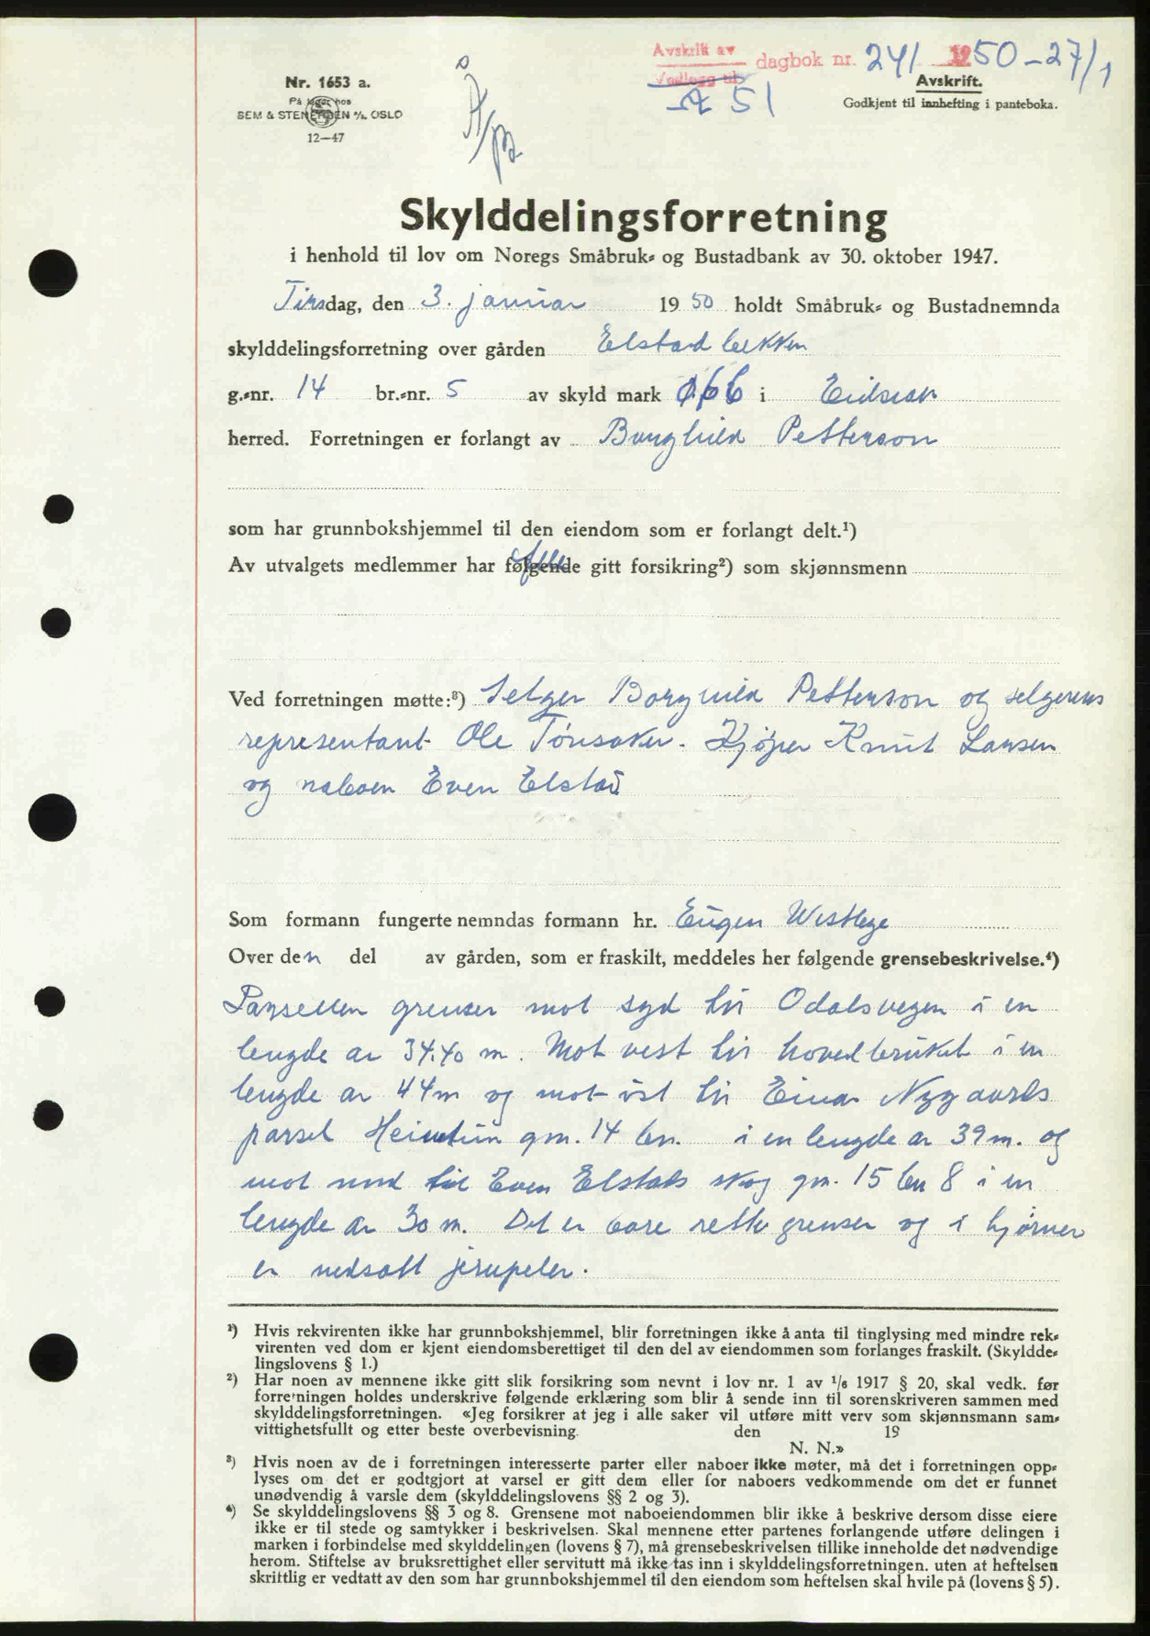 Avskrift av dagbok nr. 241 1950-27/1
Vedlegg nr.
A 51
Nr. 1653 a.
På lager hos
SEM & STENERSEN A/S. OSLO
12—47
Avskrift.
Godkjent til innhefting i panteboka.
Skylddelingsforretning
i henhold til lov om Noregs Småbruk- og Bustadbank av 30. oktober 1947.
Tirsdag, den 3. januar 1950 holdt Småbruk- og Bustadnemnda
skylddelingsforretning over gården Elstadbekken
g.-nr. 14 br.-nr. 5 av skyld mark i Eidsvoll
herred. Forretningen er forlangt av Borghild Petterson
som har grunnbokshjemmel til den eiendom som er forlangt delt.¹)
Av utvalgets medlemmer har følgende alle gitt forsikring²) som skjønnsmenn
Ved forretningen møtte:³) Selger Borghild Petterson og selgerens
representant Ole Tønsaker. Kjøper Knut Larsen
og naboen Even Elstad
Som formann fungerte nemndas formann hr. Eugen Westbye
Over den del av gården, som er fraskilt, meddeles her følgende grensebeskrivelse.⁴)
Parsellen grenser mot syd til Odalsvegen i en
lengde av 34.40 m. Mot vest til hovedbruket i en
lengde av 44m og mot øst til Einar Nygaards
parsel Heimtun gm. 14 bn. i en lengde av 39m. og
mot nord til Even Elstads skog gm. 15 bn 8 i en
lengde av 30 m. Det er bare rette grenser og i hjørner
er nedsatt jernpeler.
¹) Hvis rekvirenten ikke har grunnbokshjemmel, blir forretningen ikke å anta til tinglysing med mindre rek-
virenten ved dom er kjent eiendomsberettiget til den del av eiendommen som forlanges fraskilt. (Skyldde-
lingslovens § 1.)
²) Har noen av mennene ikke gitt slik forsikring som nevnt i lov nr. 1 av 1/6 1917 § 20, skal vedk. før
forretningen holdes underskrive følgende erklæring som blir å sende inn til sorenskriveren sammen med
skylddelingsforretningen. «Jeg forsikrer at jeg i alle saker vil utføre mitt verv som skjønnsmann sam-
vittighetsfullt og etter beste overbevisning den 19
N. N.»
³) Hvis noen av de i forretningen interesserte parter eller naboer ikke møter, må det i forretningen opp-
lyses om det er godtgjort at varsel er gitt dem eller for naboers vedkommende om det er funnet
unødvendig å varsle dem (skylddelingslovens §§ 2 og 3).
⁴) Se skylddelingslovens §§ 3 og 8. Grensene mot naboeiendommen blir ikke å beskrive dersom disse eiere
ikke er til stede og samtykker i beskrivelsen. Skal mennene etter partenes forlangende utføre delingen i
marken i forbindelse med skylddelingen (lovens § 7), må grensebeskrivelsen tillike inneholde det nødvendige
herom. Stiftelse av bruksrettighet eller servitutt må ikke tas inn i skylddelingsforretningen, uten at heftelsen
skrittlig er vedtatt av den som har grunnbokshjemmel til den eiendom som heftelsen skal hvile på (lovens § 5).